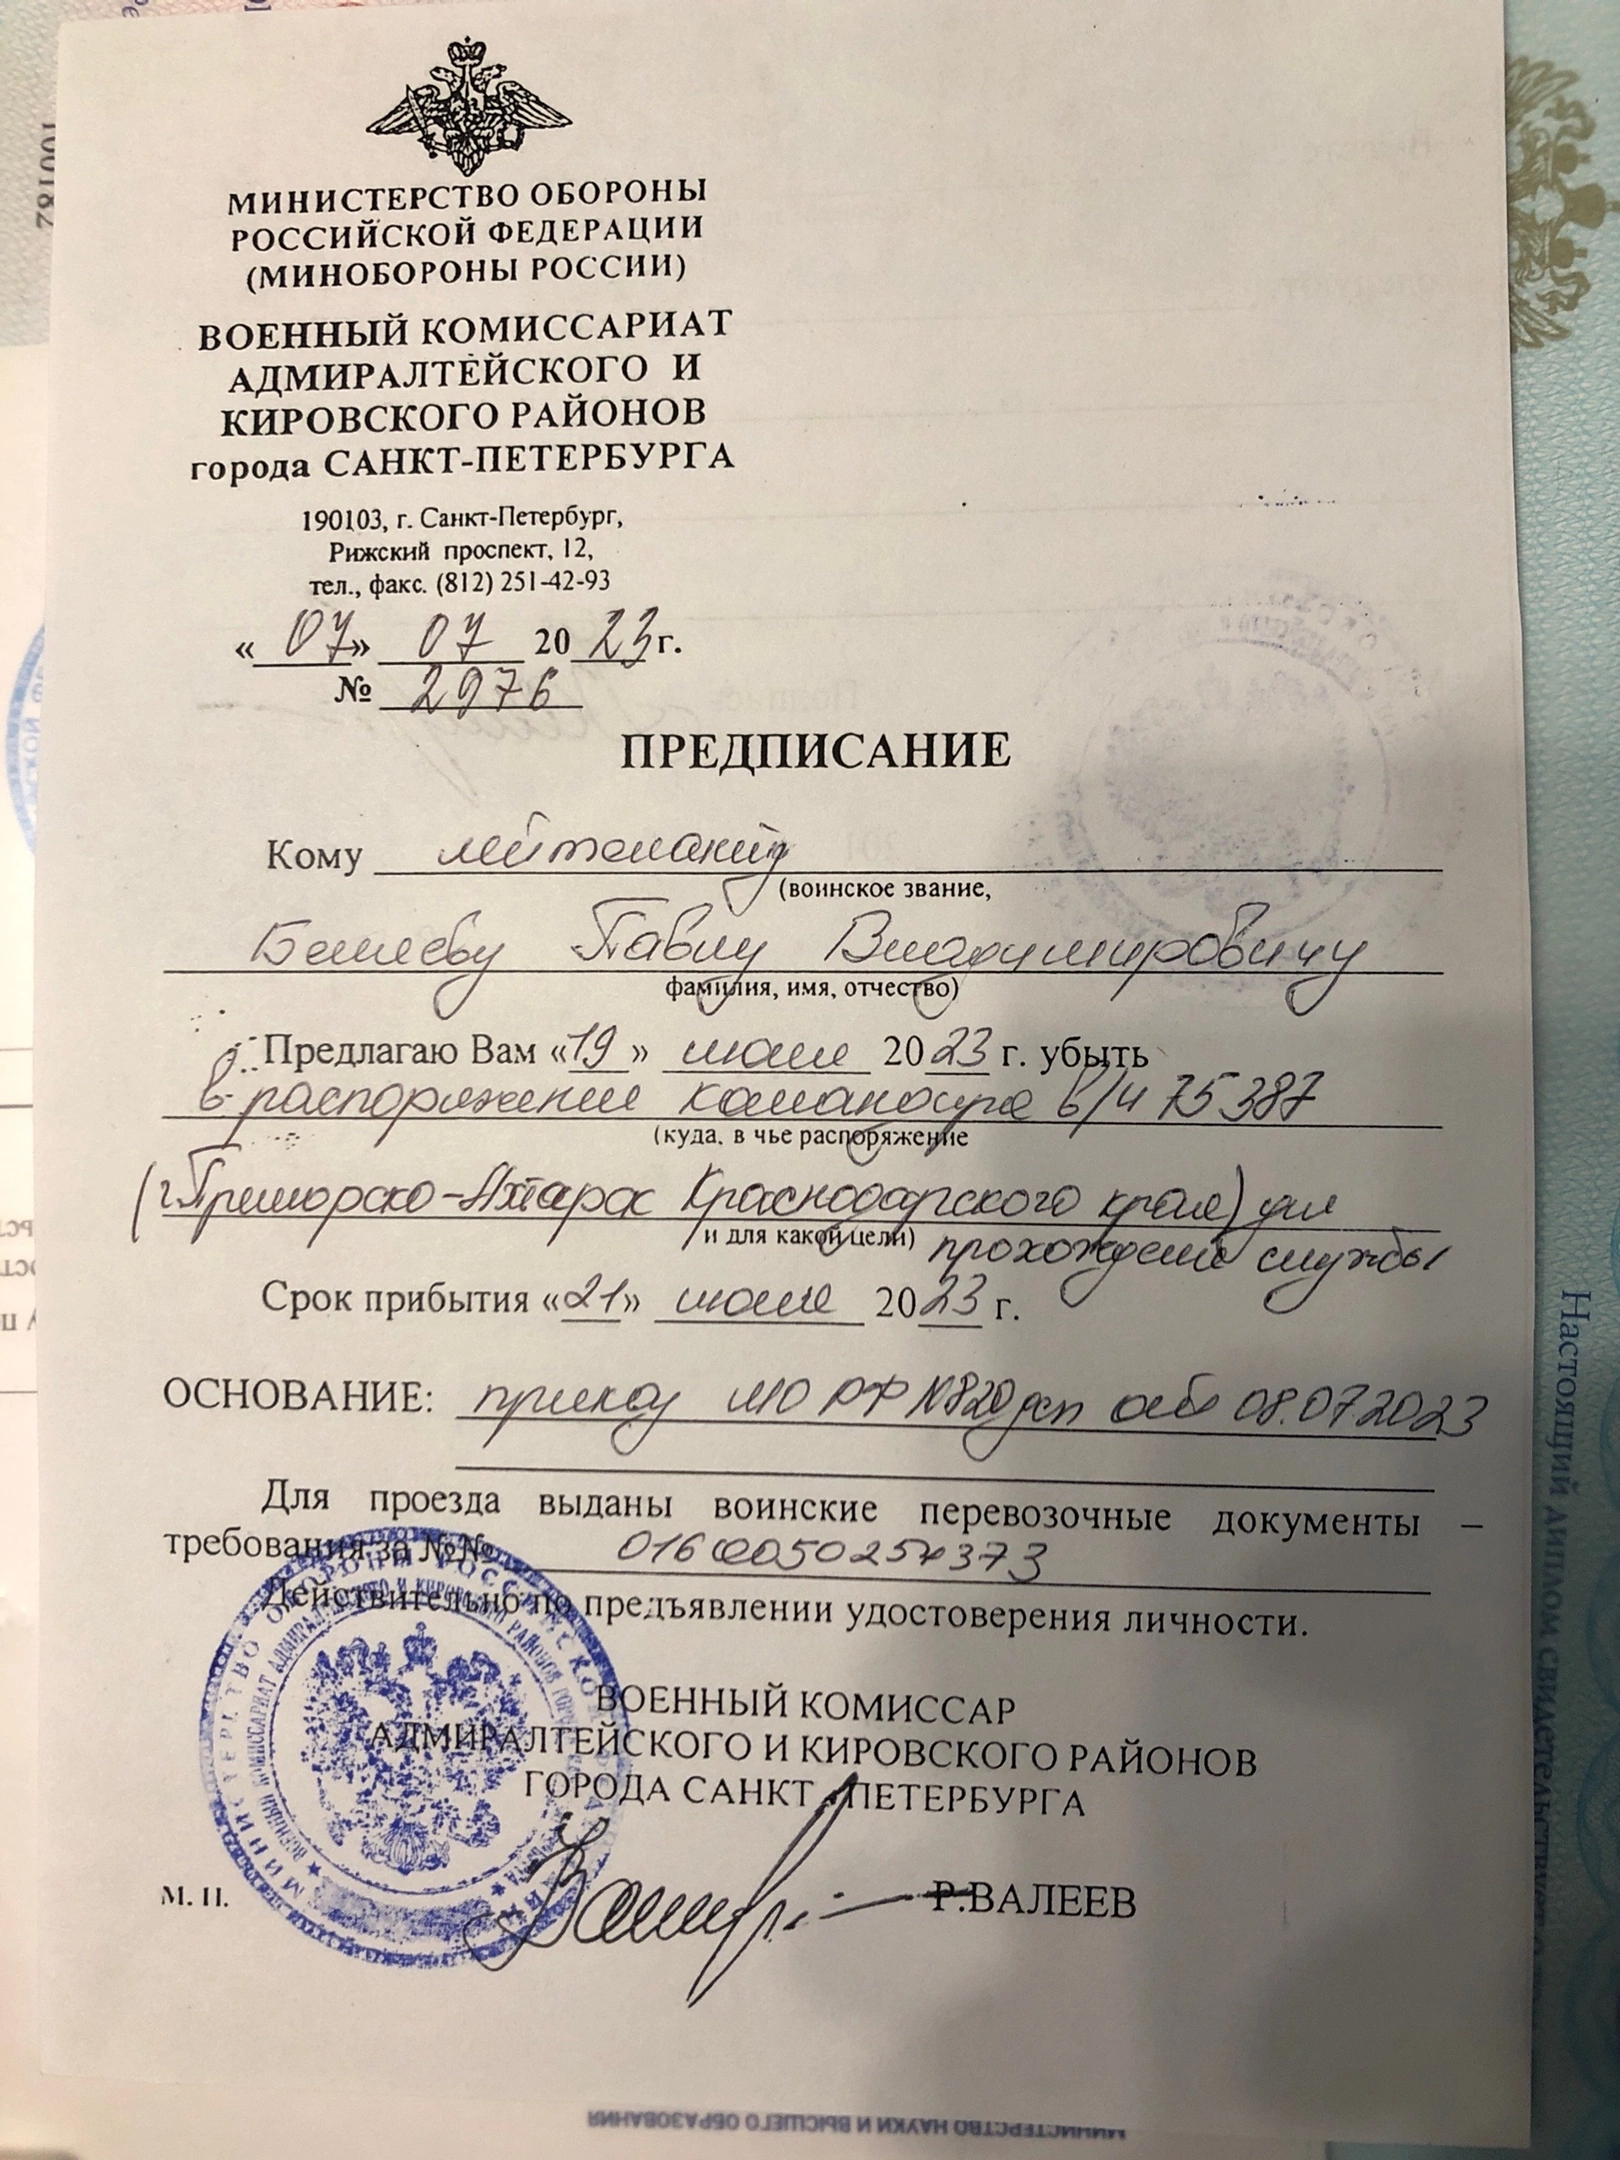 МИНИСТЕРСТВО ОБОРОНЫ
РОССИЙСКОЙ ФЕДЕРАЦИИ
(МИНОБОРОНЫ РОССИИ)
ВОЕННЫЙ КОМИССАРИАТ
АДМИРАЛТЕЙСКОГО И
КИРОВСКОГО РАЙОНОВ
города САНКТ-ПЕТЕРБУРГА
190103, г. Санкт-Петербург,
Рижский проспект, 12,
тел., факс. (812) 251-42-93
«07» 07 2023 г.
№ 2976
ПРЕДПИСАНИЕ
Кому лейтенанту
(воинское звание,
Павлу Владимировичу
фамилия, имя, отчество)
Предлагаю Вам «19» июля 2023 г. убыть
в распоряжение командира в/ч 75387
(куда, в чье распоряжение
(г.Приморско-Ахтарск Краснодарского края) для
и для какой цели) прохождения службы
Срок прибытия «21» июля 2023 г.
ОСНОВАНИЕ: приказ МО РФ №820дсп от 08.07.2023
Для проезда выданы воинские перевозочные документы –
требования за №№
Действительно по предъявлении удостоверения личности.
ВОЕННЫЙ КОМИССАР
АДМИРАЛТЕЙСКОГО И КИРОВСКОГО РАЙОНОВ
ГОРОДА САНКТ - ПЕТЕРБУРГА
М. П. Р.ВАЛЕЕВ
Настоящий диплом свидетельствует о
МИНИСТЕРСТВО НАУКИ И ВЫСШЕГО ОБРАЗОВАНИЯ